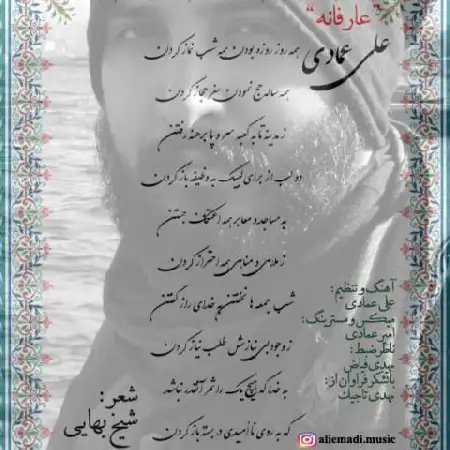 "عارفانه"
علی عمادی
همه روز روزه بودن، همه شب نماز کردن
همه ساله حج نمودن سفر حجاز کردن
ز مدینه تا به کعبه سر و پا برهنه رفتن
دو لب از برای لبیک به وظیفه باز کردن
به مساجد و معابر همه اعتکاف جستن
ز ملاهی و مناهی همه احتراز کردن
شب جمعه ها نخفتن به خدای راز گفتن
ز وجود بی نیازش طلب نیاز کردن
به خدا که هیچ یک را ثمر آنقدر نباشد
که به روی نا امیدی در بسته باز کردن
شعر:
شیخ بهایی
آهنگ و تنظیم:
علی عمادی
میکس و مسترینگ:
امیر عمادی
ناظر ضبط:
مهدی فیاض
باتشکر فراوان از:
مهدی تاجیک
aliemadi.music